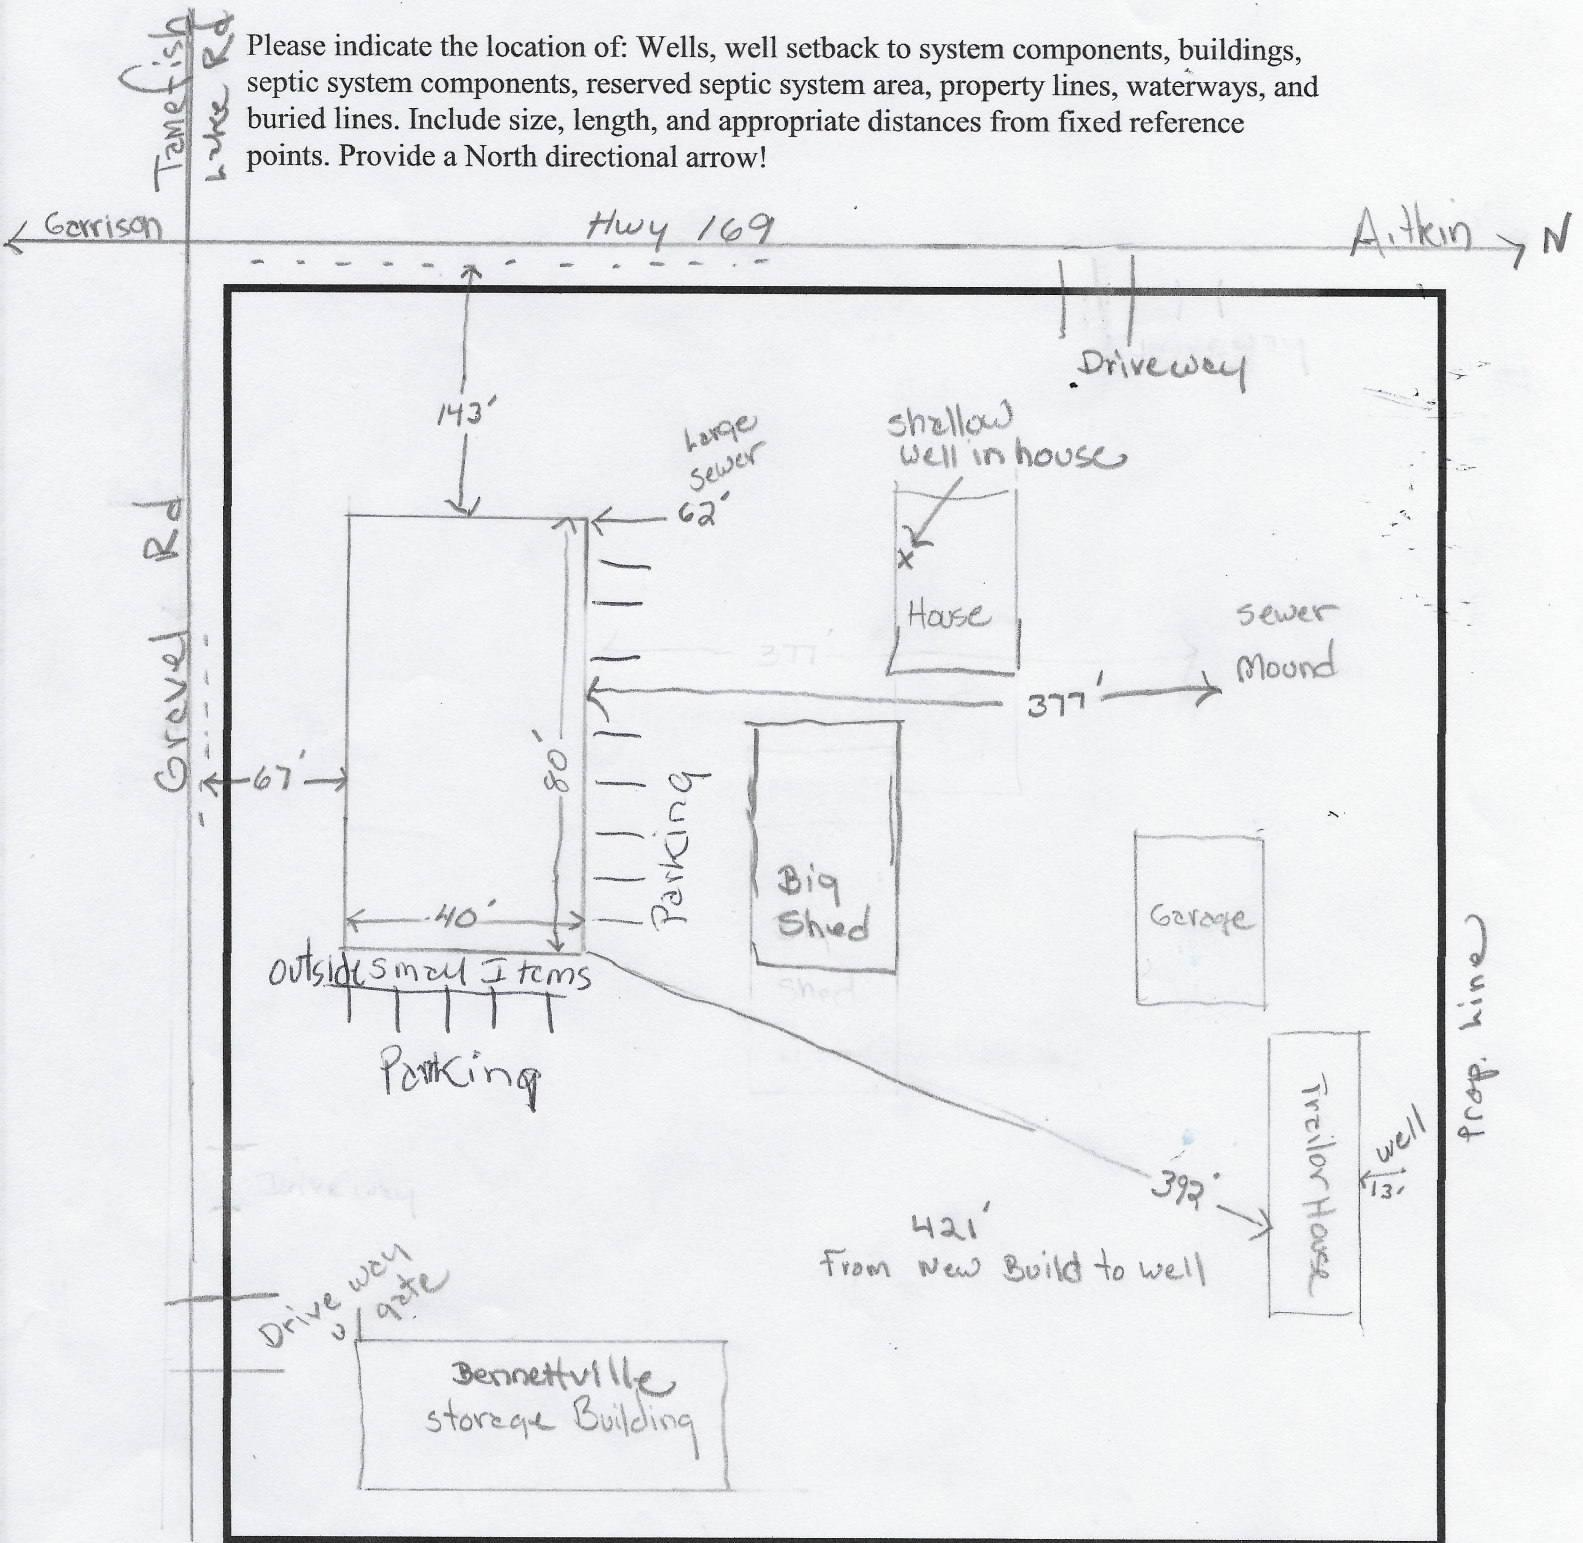 Tamefish
Lake Rd
Please indicate the location of: Wells, well setback to system components, buildings,
septic system components, reserved septic system area, property lines, waterways, and
buried lines. Include size, length, and appropriate distances from fixed reference
points. Provide a North directional arrow!
Garrison
Hwy 169
Aitkin
N
Driveway
143'
Large
sewer
62'
shallow
well in house
x
House
Gravel Rd
sewer
Mound
377'
377'
67'
80'
Parking
Big
Shed
Garage
40'
outside Small Items
Shed
Parking
Prop. Line
Trailor House
well
13'
392'
421'
From New Build to well
Driveway
Drive way
gate
Bennettville
storage Building